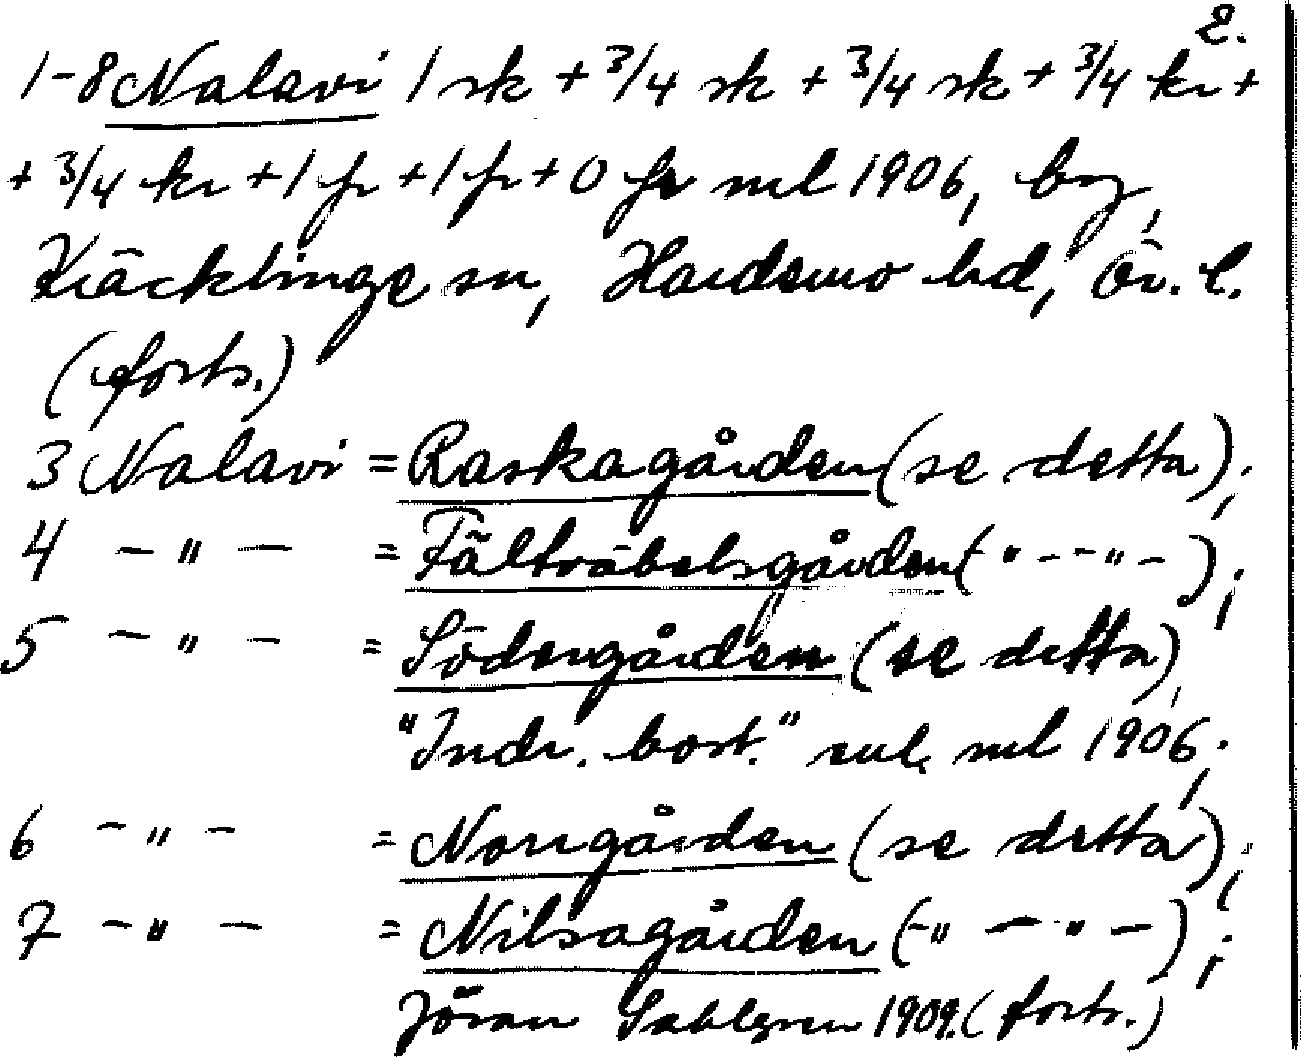 2.
1-8 Nalavi 1 sk + 3/4 sk + 3/4 sk + 3/4 kr +
+ 3/4 kr + 1 fr + 1 fr + 0 fr ml 1906, by,
Kräcklinge sn, Hardemo hd, Ör. l.
(forts.)
3 Nalavi = Raskagården (se detta);
4 - " - = Fältväbelsgården (- " - - " -);
5 - " - = Södergården (se detta),
"Indr. bost." enl. ml 1906;
6 - " - = Norrgården (se detta);
7 - " - = Nilsagården (- " - - " -);
Jöran Sahlgren 1909. (forts.)